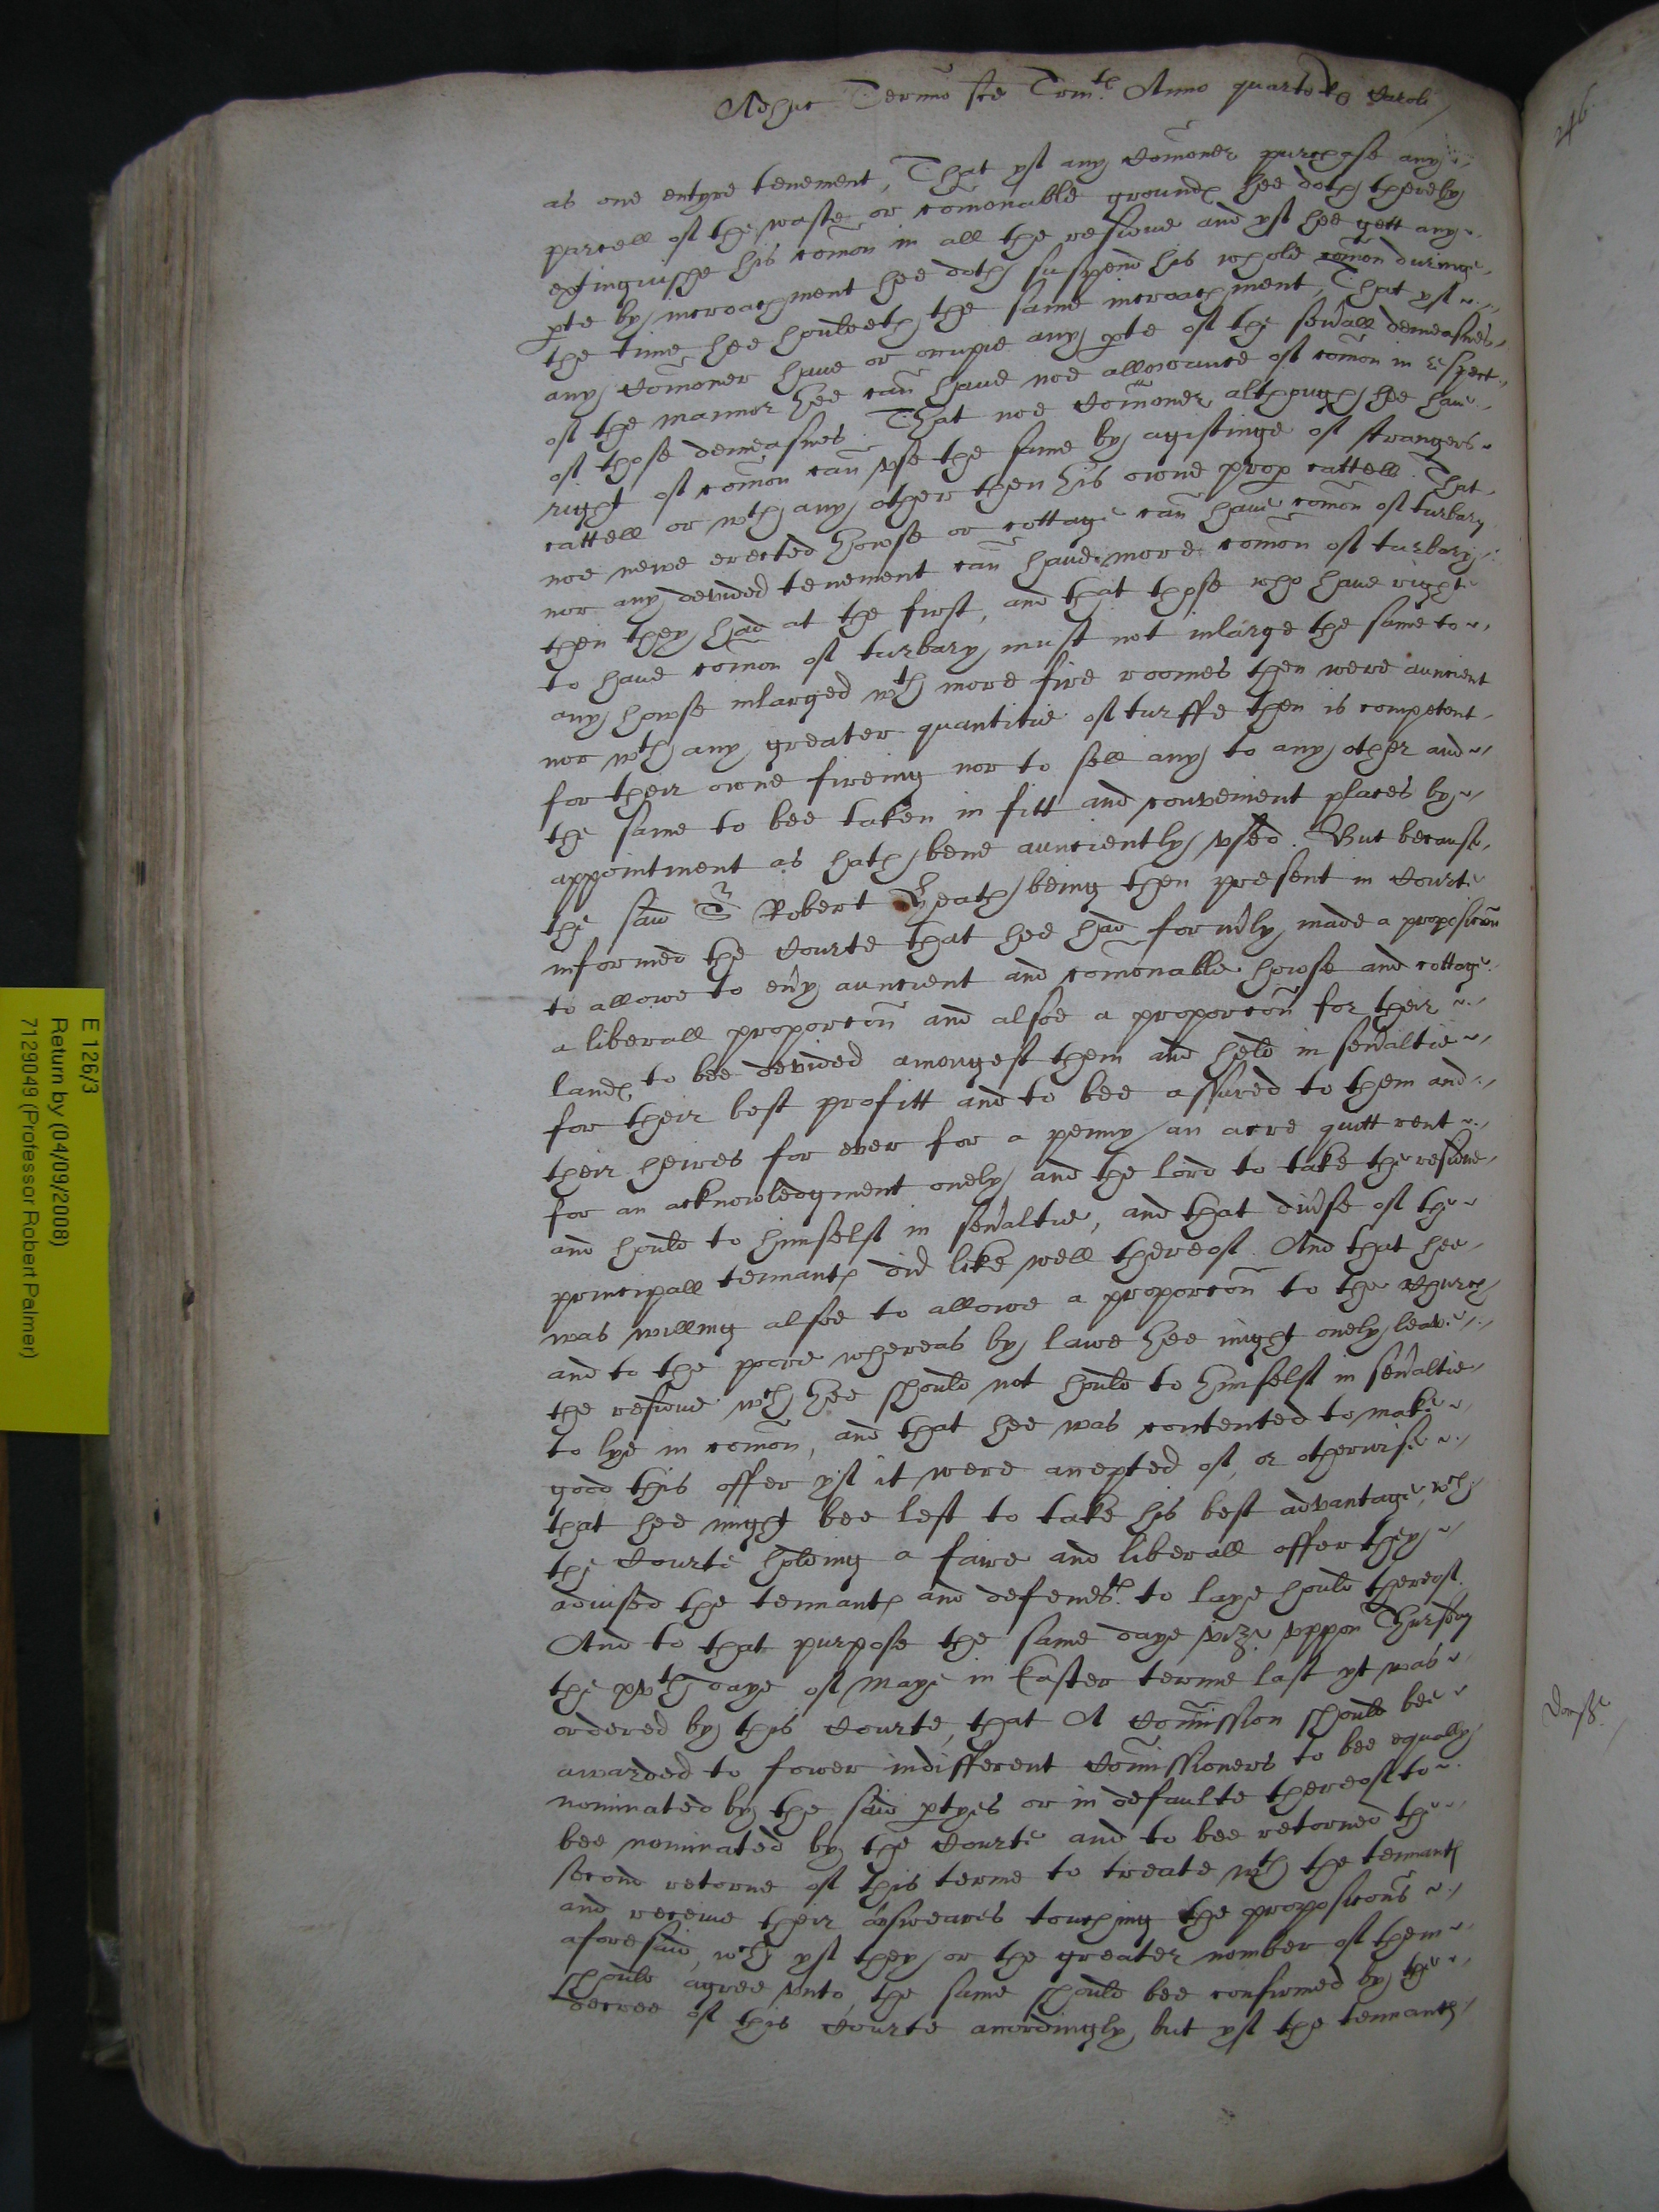 Adhuc Termino sce Trin:tis Anno quarto Rs Caroli
as one entyre tenement, That yf any Comoner purchase any
parcell of the waste or comonable ground hee doth thereby
extinguishe his comon in all the residue and yf hee gett any
pte by incroachment hee doth suspend his whole comon duringe
the time hee houldeth the same incroachment, That yf
any Comoner have or occupie any pte of the sevall demeasnes
of the mannor hee can have noe allowance of comon in respect
of those demeasnes That noe Comoner although hee have
right of comon can use the same by agistinge of strangers
cattell or wth any other then his owne prop cattell. That
noe newe erected howse or cottage can have comon of turbary
nor any devided tenement can have more comon of turbary
then they had at the first, and that those who have right
to have comon of turbary must not inlarge the same to
any howse inlarged wth more fire roomes then were auncient
nor wth any greater quantitie of turffe then is competent
for their owne fireing nor to sell any to any other and
the same to bee taken in fitt and convenient places by
appointment as hath bene aunciently used. But because
the said Sr Robert Heath being then present in Courte
informed the Courte that hee had formly made a proposicon
to allowe to evy auncient and comonable howse and cottage
a liberall proporcon and alsoe a proporcon for their
land to bee devided amongest them and held in sevaltie
for their best profitt and to bee assured to them and
their heires for ever for a penny an acre quitt rent
for an acknowledgment onely and the lord to take the residue
and hould to himself in sevaltie, and that divse of the
principall tennants did like well thereof. And that hee
was willing alsoe to allowe a proporcon to the Church
and to the poore whereas by lawe hee might onely leave
the residue wch hee should not hould to himself in sevaltie
to lye in comon, and that hee was contented to make
good this offer yf it were accepted of, or otherwise
that hee might bee left to take his best advantage, wch
the Courte holding a faire and liberall offer they
advised the tennants and defendts to laye hould thereof.
And to that purpose the same daye vizt uppon Thursday
the xvth daye of Maye in Easter terme last yt was
ordered by this Courte, that A Comission should bee
awarded to fower indifferent Comissioners to bee equally
nominated by the said ptyes or in defaulte thereof to
bee nominated by the Courte and to bee retorned the
second retorne of this terme to treate wth the tennants
and receive their answeares touching the propposicons
aforesaid, wch yf they or the greater nomber of them
should agree unto the same should bee confirmed by the
decree of this Courte accordingly, but yf the tennants
246
E 126/3
Return by (04/09/2008)
7129049 (Professor Robert Palmer)